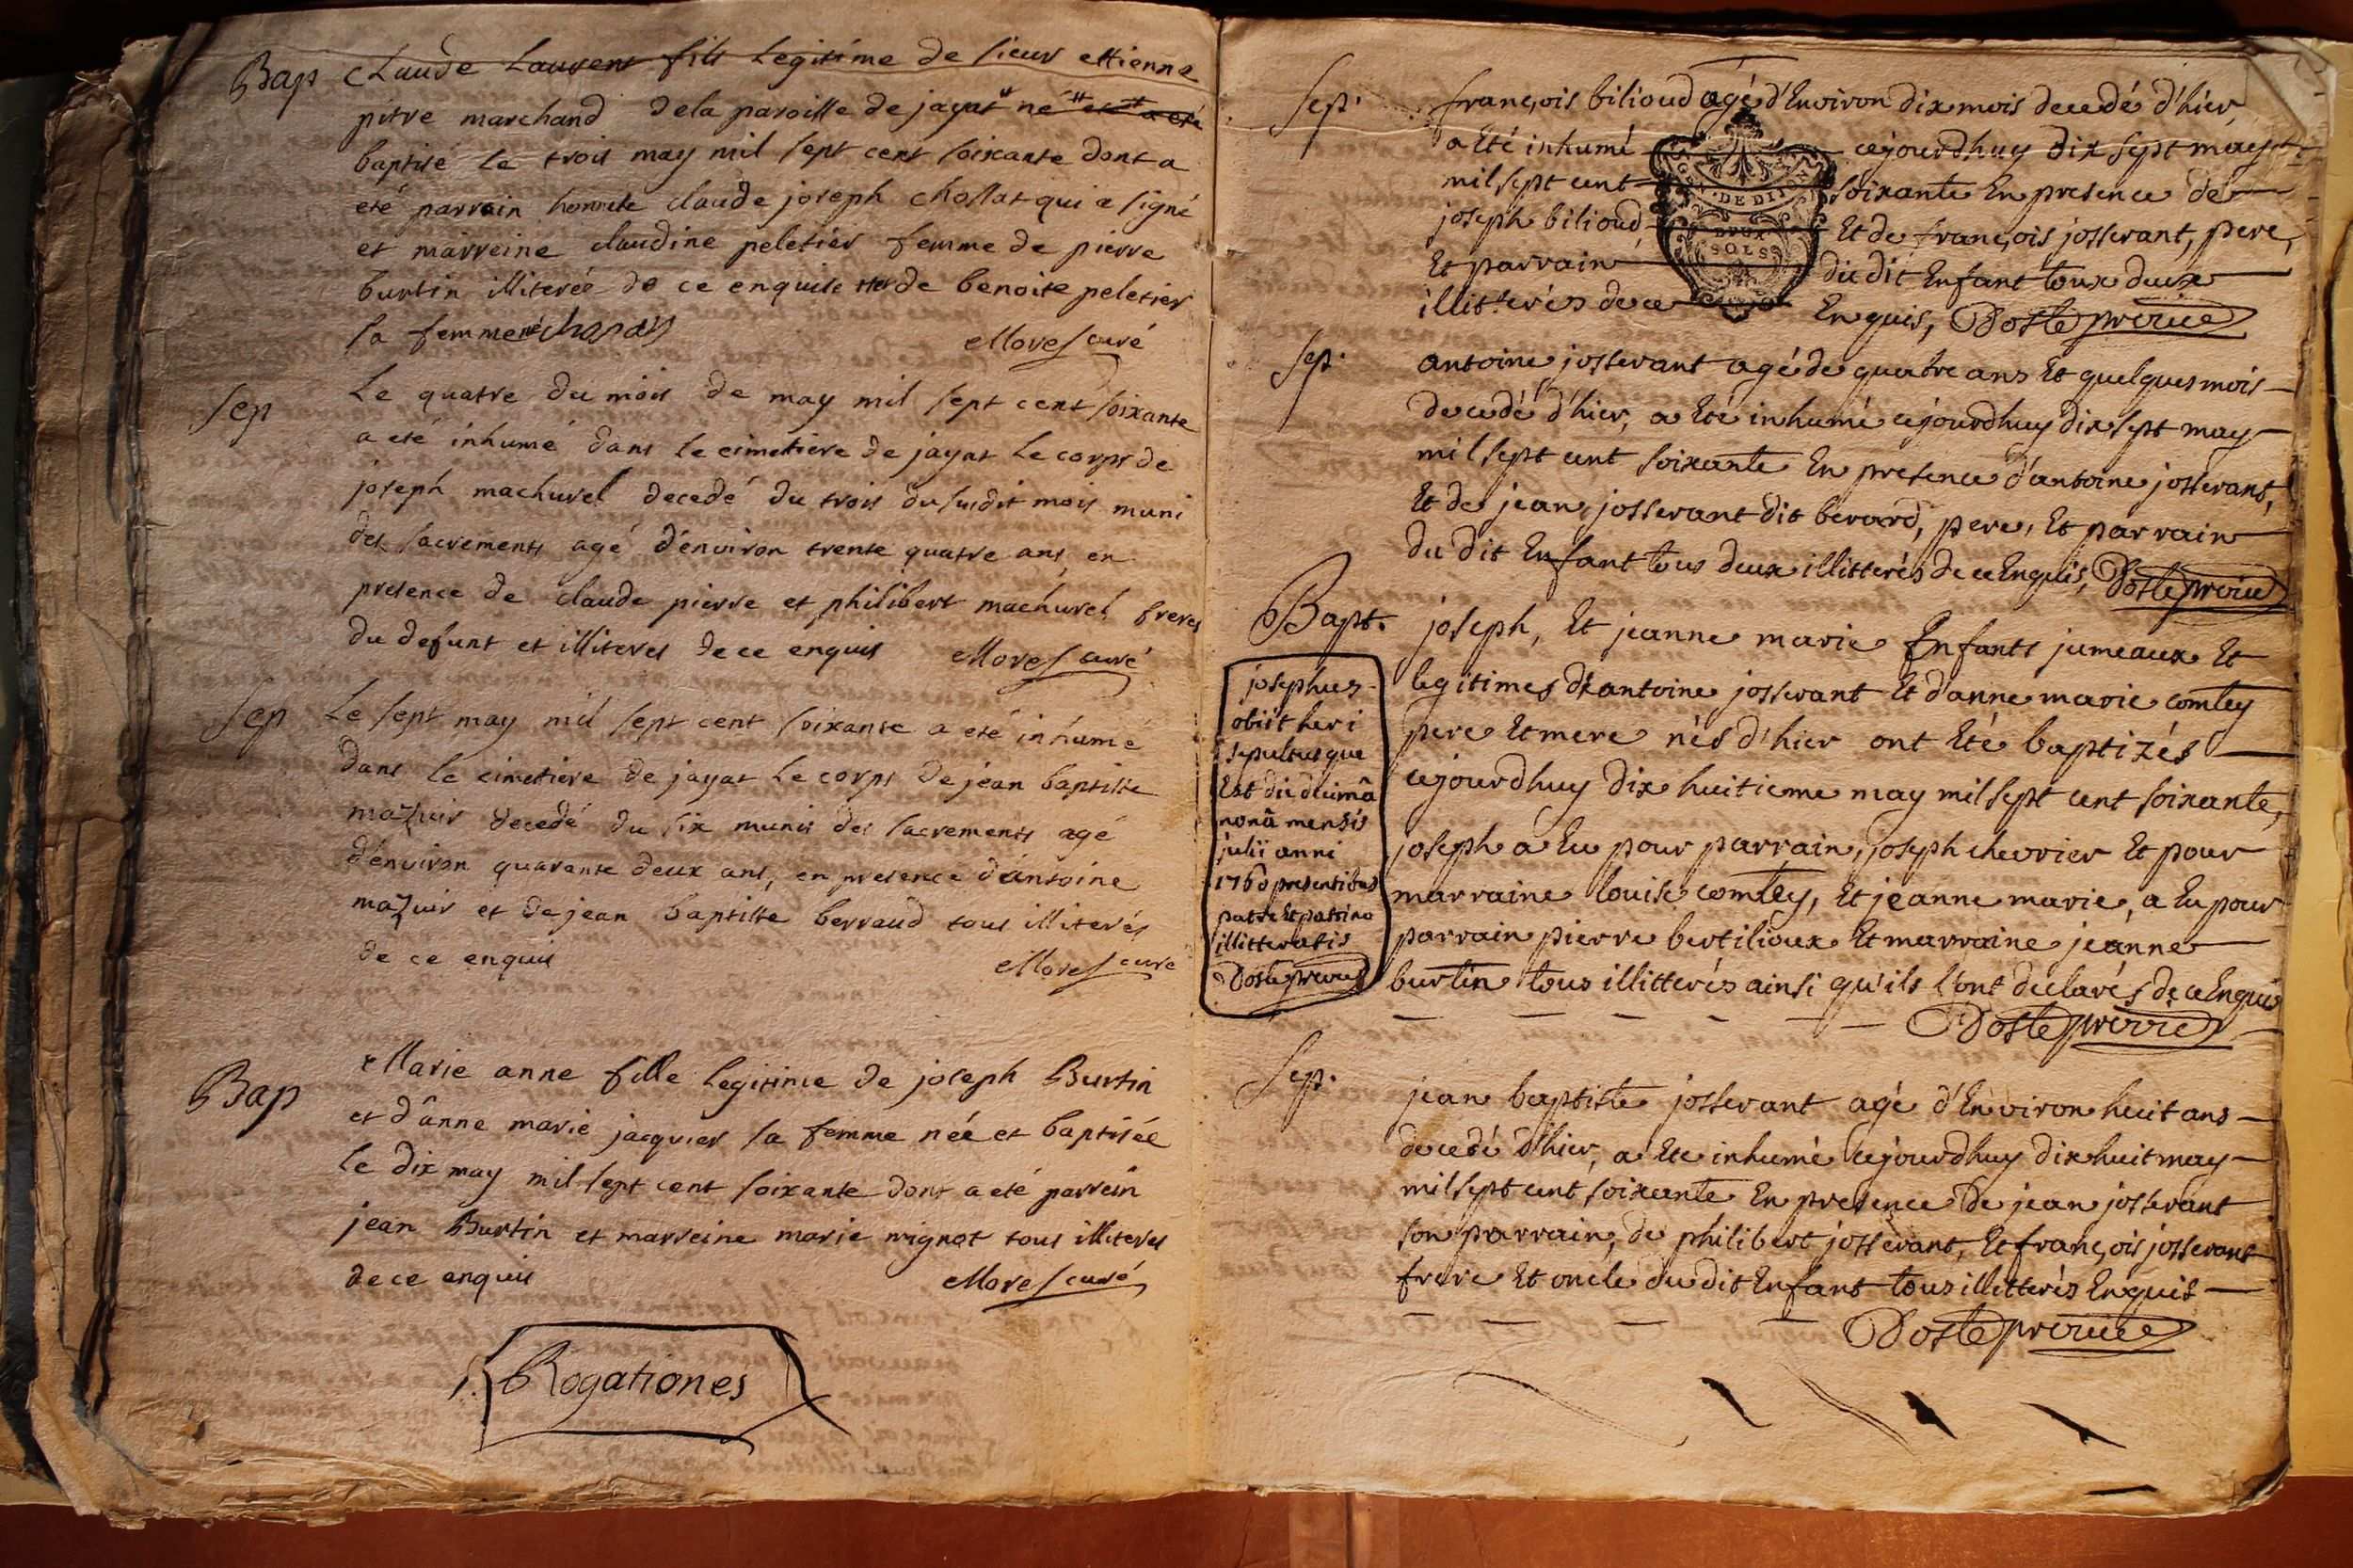 Bap Claude Laurent fils legitime de sieur ettienne
pitre marchand dela paroisse de jayat né et a eté
baptisé le trois may mil sept cent soixante dont a
eté parrain honnete claude joseph chossat qui a signé
et marreine claudine peletier femme de pierre
burtin illiterée de ce enquise et de benoite peletier
sa femme
Mores curé
Sep Le quatre du mois de may mil sept cent soixante
a eté inhumé dans le cimetiere de jayat le corps de
joseph machurel decedé du trois du susdit mois muni
des sacrements agé d'environ trente quatre ans, en
presence de claude pierre et philibert machurel freres
du defunt et illiteres de ce enquis Mores curé
Sep Le sept may mil sept cent soixante a eté inhumé
dans le cimetiere de jayat le corps de jean baptiste
mazuir decedé du six munis des sacrements agé
d'environ quarante deux ans, en presence d'antoine
mazuir et de jean baptiste berraud tous illiterés
de ce enquis Mores cure
Bap Marie anne fille legitime de joseph Burtin
et d'anne marie jacquier sa femme née et baptisée
le dix may mil sept cent soixante dont a eté parrein
jean Burtin et marreine marie mignot tous illiteres
de ce enquis Mores curé
Rogationes
Sep. françois bilioud agé d'Environ dix mois decedé d'hier,
a Eté inhumé cejourdhuy dix sept may
mil sept cent soixante En presence de
joseph bilioud, Et de françois josserant, pere,
Et parrain du dit Enfant tous deux
illitterés de ce Enquis, Doste pr
GEN. DE DIJON
DEUX
SOLS
Sep. antoine josserant agé de quatre ans Et quelques mois
decedé d'hier, a Eté inhumé cejourdhuy dix sept may
mil sept cent soixante En presence d'antoine josserant,
Et de jean josserant dit berard, pere, Et parrain
du dit Enfant tous deux illitterés de ce Enquis, Doste
Bapt. joseph, Et jeanne marie Enfants jumeaux Et
legitimes d'antoine josserant Et d'anne marie comtey
pere Et mere nés d'hier ont Eté baptizés
cejourdhuy dix huitieme may mil sept cent soixante,
joseph a Eu pour parrain, joseph chevrier Et pour
marraine louise comtey, Et jeanne marie, a Eu pour
parrain pierre bertilioux Et marraine jeanne
burtin tous illitterés ainsi qu'ils l'ont déclarés de ce Enquis
Doste
josephus
obiit heri
sepultusque
Est die decimâ
nonâ mensis
julii anni
1760 presentibus
patre Et patrino
illitteratis
Doste
Sep. jean baptiste josserant agé d'Environ huit ans
decedé d'hier, a Eté inhumé cejourdhuy dix huit may
mil sept cent soixante En presence de jean josserant
son parrain, de philibert josserant, Et françois josserant
frere Et oncle du dit Enfant tous illitterés Enquis
Doste